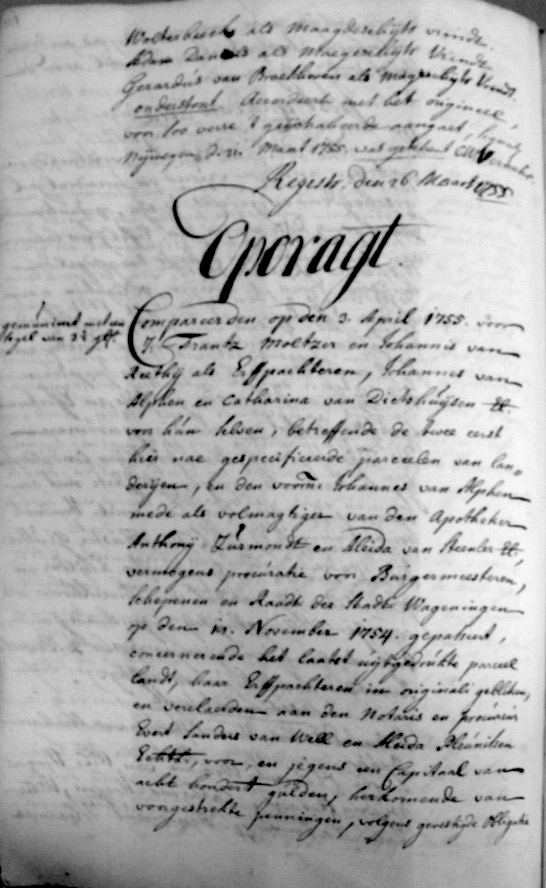 Wolterbeeck als maagdeschijts vrinde.
Adam Daniels als Maegeschijts Vrinde
Gerardus van Broekhoven als Magescheyts Vrindt.
onderstont Accordeert met het origineel,
voor soo verre 't geexhibeerde aangaet,
Nijmegen, d. 21. Maart 1755. was getekent
Registr. den 26 Maart 1755
Oporagt.
gemuniëert met een
segel van
Compareerden op den 3. April 1755. voor
Frantz Moltzer en Johannis van
als Erffpachteren, Johannes van
Alphen en Catharina van Dietshuijsen
voor hun selven, betreffende de twee eerst
hier nae gespecificeerde parceelen van lan„
derijen, en den voorn: Johannes van Alphen
mede als volmagtiger van den Apotheker
Anthonij Zurmondt en Aleida van
vermogens procuratie voor Burgermeesteren,
Schepenen en Raadt der Stadt Wageningen
op den November 1754. gepasseert,
concernerende het laatst uijtgedrukte parceel
landt, haar Erffpachteren in originali gebleken,
en verclaerden aan den Notaris en procureur
Evert Sanders van Well en Aleida
voor, en jegens een Capitaal van
acht hondert gulden, herkomende van
voorgestrekte penningen, volgens gevestigde Obligatie